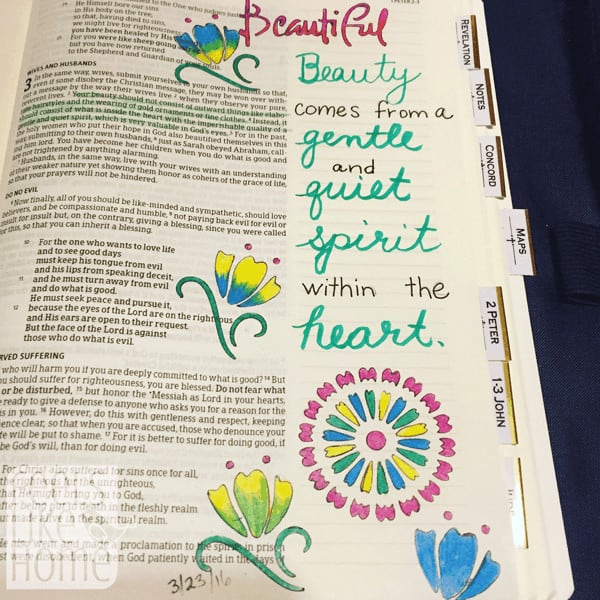 1 PETER 2-3
to the One who judges justly
24 He Himself bore our sins
in His body on the tree,
so that, having died to sins,
we might live for righteousness
you have been healed by His
25 For you were like sheep going
but you have now returned
to the Shepherd and Guardian of your souls.
WIVES AND HUSBANDS
3 In the same way, wives, submit yourselves to your own husbands so that,
even if some disobey the Christian message, they may be won over with-
out a message by the way their wives live 2 when they observe your pure,
reverent lives. 3 Your beauty should not consist of outward things like elab-
orate hairstyles and the wearing of gold ornaments or fine clothes. 4 Instead, it
should consist of what is inside the heart with the imperishable quality of a
gentle and quiet spirit, which is very valuable in God's eyes. 5 For in the past,
the holy women who put their hope in God also beautified themselves in this
way, submitting to their own husbands, 6 just as Sarah obeyed Abraham, call-
ing him lord. You have become her children when you do what is good and
are not frightened by anything alarming.
7 Husbands, in the same way, live with your wives with an understanding
of their weaker nature yet showing them honor as coheirs of the grace of life,
so that your prayers will not be hindered.
DO NO EVIL
8 Now finally, all of you should be like-minded and sympathetic, should love
believers, and be compassionate and humble, 9 not paying back evil for evil or
insult for insult but, on the contrary, giving a blessing, since you were called
for this, so that you can inherit a blessing.
10 For the one who wants to love life
and to see good days
must keep his tongue from evil
and his lips from speaking deceit,
11 and he must turn away from evil
and do what is good.
He must seek peace and pursue it,
12 because the eyes of the Lord are on the righteous
and His ears are open to their request.
But the face of the Lord is against
those who do what is evil.
RVED SUFFERING
who will harm you if you are deeply committed to what is good? 14 But
you should suffer for righteousness, you are blessed. Do not fear what
or be disturbed, 15 but honor the Messiah as Lord in your hearts.
be ready to give a defense to anyone who asks you for a reason for the
is in you. 16 However, do this with gentleness and respect, keeping
ience clear, so that when you are accused, those who denounce your
life will be put to shame. 17 For it is better to suffer for doing good, if
be God's will, than for doing evil.
For Christ also suffered for sins once for all,
the righteous for the unrighteous,
that He might bring you to God,
after being put to death in the fleshly realm
but made alive in the spiritual realm.
He also went and made a proclamation to the spirits in prison
past were disobedient, when God patiently waited in the days of
3/23/16
Home
Beautiful
Beauty
comes from a
gentle
and
quiet
spirit
within the
heart.
REVELATION
NOTES
CONCORD
MAPS
2 PETER
1-3 JOHN
JUDE